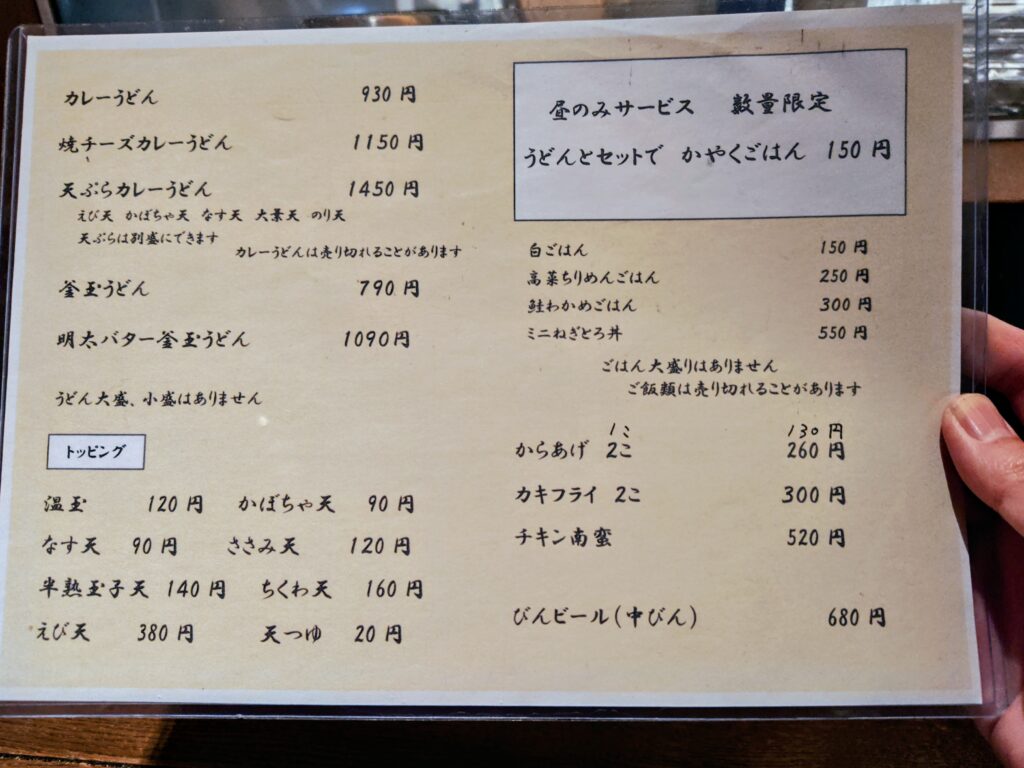 カレーうどん 930 円
焼チーズカレーうどん 1150 円
天ぷらカレーうどん 1450 円
えび天 かぼちゃ天 なす天 大葉天 のり天
天ぷらは別盛にできます
カレーうどんは売り切れることがあります
釜玉うどん 790 円
明太バター釜玉うどん 1090円
うどん大盛、小盛はありません
トッピング
温玉 120 円 かぼちゃ天 90 円
なす天 90 円 ささみ天 120 円
半熟玉子天 140 円 ちくわ天 160 円
えび天 380 円 天つゆ 20 円
昼のみサービス 数量限定
うどんとセットで かやくごはん 150 円
白ごはん 150 円
高菜ちりめんごはん 250 円
鮭わかめごはん 300 円
ミニねぎとろ丼 550 円
ごはん大盛りはありません
ご飯類は売り切れることがあります
1コ 130 円
からあげ 2こ 260 円
カキフライ 2こ 300 円
チキン南蛮 520 円
びんビール(中びん) 680 円